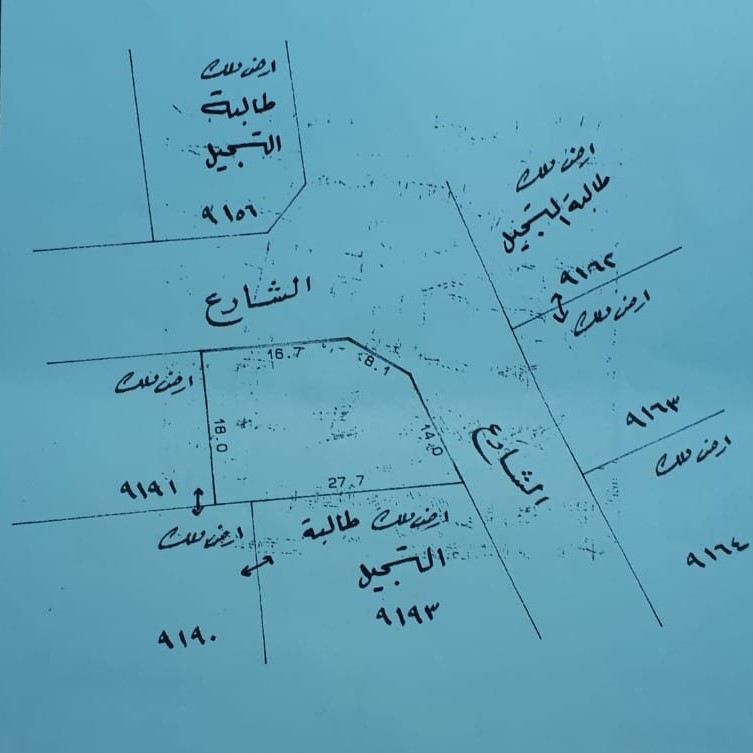 ارض ملك
طالبة
التسجيل
٩١٥٦
ارض ملك
طالبة التسجيل
٩١٦٢
ارض ملك
٩١٦٣
ارض ملك
٩١٦٤
الشارع
16.7
8.1
ارض ملك
18.0
14.0
الشارع
27.7
٩١٩١
ارض ملك
ارض ملك طالبة
التسجيل
٩١٩٣
٩١٩٠